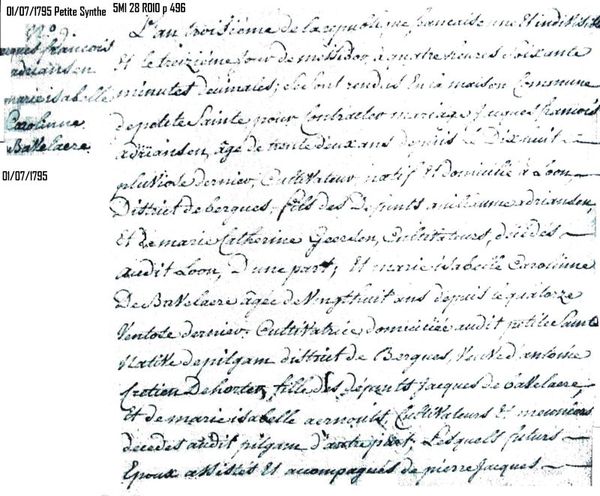 01/07/1795 Petite Synthe
5MI 28 R010 p 496
N.° 9.
jacques francois
adriansen
marie isabelle
Carolinne
BaVelaere
01/07/1795
L'an troisiéme de la republique francaise une et indivisible
Et le treizieme jour de messidor a quatre heures soixante
minutes decimales; se sont rendus En la maison Commune
de petite Sainte pour Contracter mariage, jacques francois
adriansen, age de trente deux ans depuis le Dix huit
pluviose dernier, Cultivateur natif et domicilié à Loon,
District de bergues, fils des Defunts guillaume adriansen,
Et de marie Catherine Geerssen, Cultivateurs, décedés
audit Loon, D'une part; Et marie isabelle Carolinne
De BaVelaere agée de Vingt huit ans depuis le quatorze
Ventose dernier, Cultivatrice domiciliée audit petite Sainte
Native de pitgam district de Bergues, Veuve d'antoine
Cretien Dehorter, fille des défunts jacques de baVelaere,
Et de marie isabelle aernouts, Cultivateurs Et meuniers
décedés audit pitgam d'autre part, Lesquels futurs
Epoux assistés Et acompagnés de pierre jacques